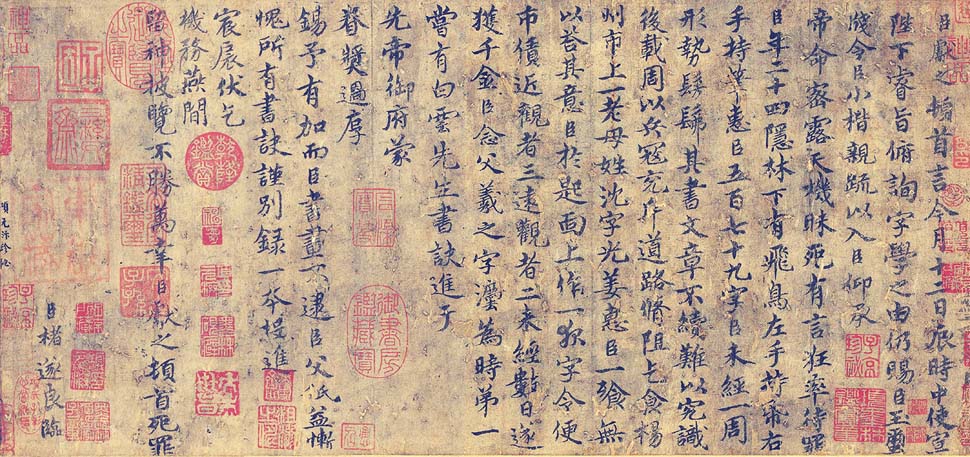 臣獻之頓首言今月十二日辰時中使宣
陛下睿旨俯詢字學之由仍賜臣玉璽
牋令臣小楷親疏以入臣仰承
帝命密露天機昧死有言狂率待罪
臣年二十四隱林下有飛鳥左手持帋右
手持筆惠臣五百七十九字臣未經一周
形勢髣髴其書文章不續難以究識
後載周以兵寇充斥道路脩阻乞食楊
州市上一老母姓沈字光姜惠臣一飱無
以答其意臣於匙面上作一夜字令便
市債近觀者三遠觀者二未經數日遂
獲千金臣念父羲之字灋為時第一
嘗有白雲先生書訣進于
先帝御府蒙
眷奬過厚
錫予有加而臣書畫不逮臣父祇益慚
愧所有書訣謹別錄一本投進
宸扆伏乞
機務燕閒
留神披覽不勝萬幸臣獻之頓首死罪
臣褚遂良臨
乾隆鑑賞
御書房鑑藏寶